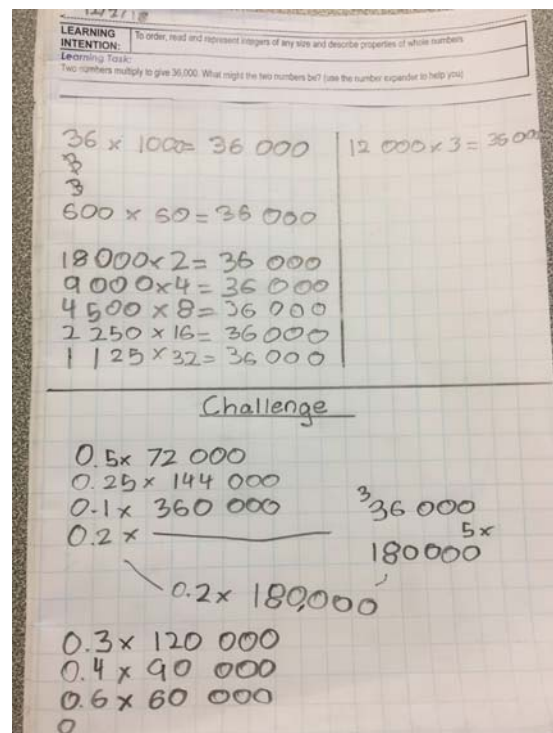 LEARNING INTENTION: To order, read and represent integers of any size and describe properties of whole numbers
Learning Task:
Two numbers multiply to give 36,000. What might the two numbers be? (use the number expander to help you)
36 x 1000= 36 000
3
3
600 x 60= 36 000
18000x2= 36 000
9000x4= 36000
4500x8= 36000
2250x16= 36000
1125x32= 36000
12 000x3=3600
Challenge
0.5x 72 000
0.25x 144 000
0.1x 360 000
0.2x
3
36 000
5x
180000
0.2x 180,000
0.3x 120 000
0.4x 90 000
0.6x 60 000
0